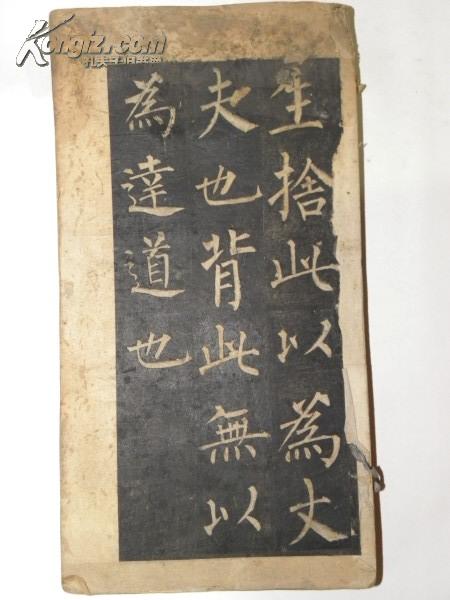 生捨此以為丈
夫也背此無以
為達道也
Kongfz.com
孔夫子旧书网